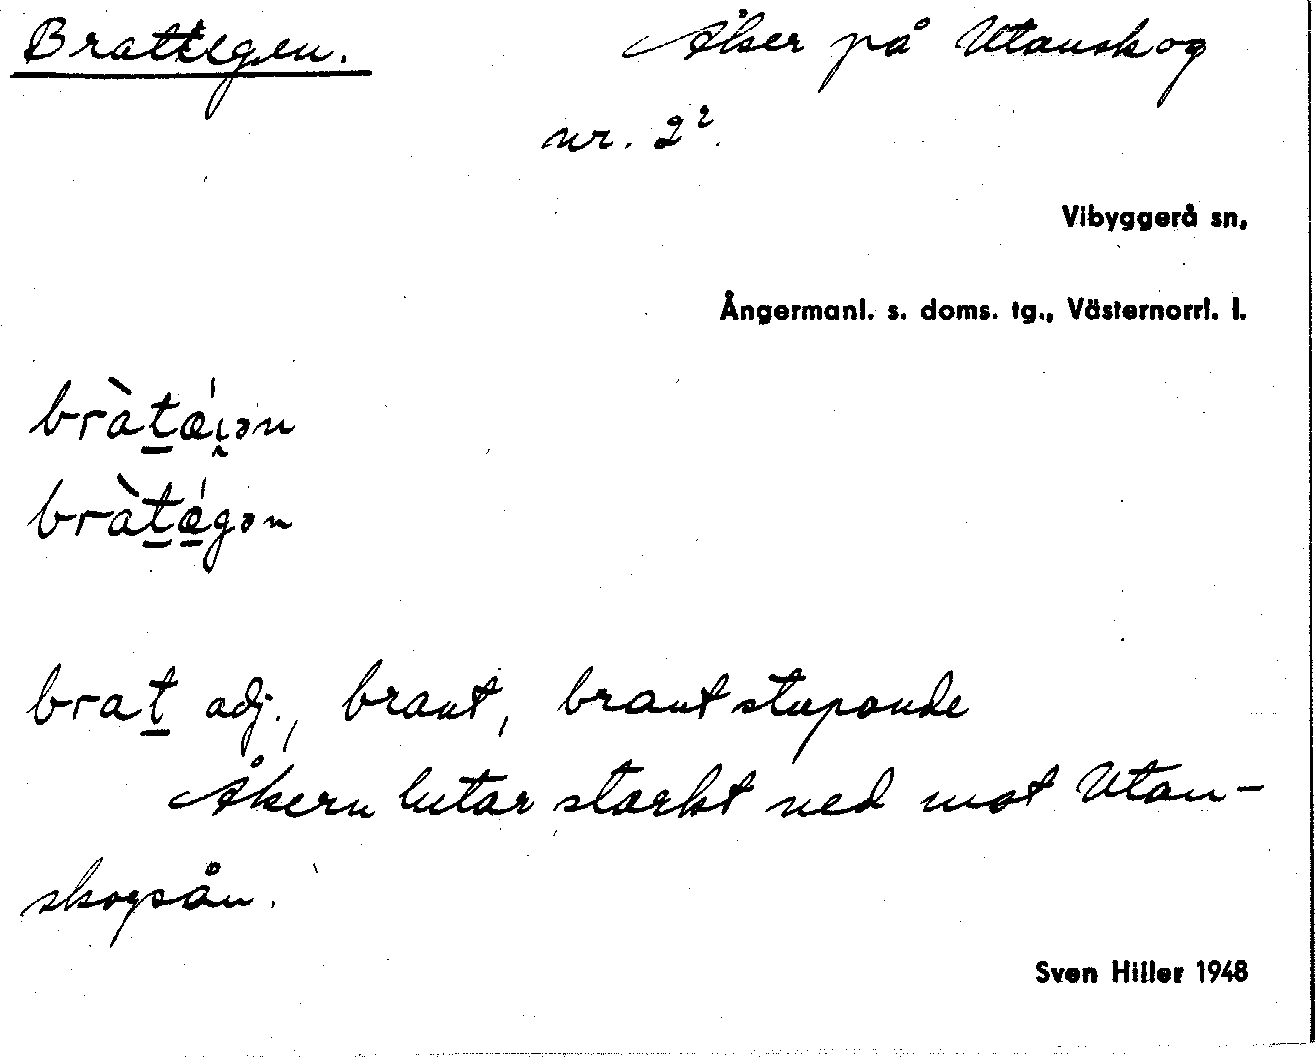 Brattegen. Åker på Utanskog
nr. 2².
Vibyggerå sn,
Ångermanl. s. doms. tg., Västernorrl. l.
bràt̲ǽi̯ən
bràt̲ǽ̲gən
brat̲ adj., brant, brant stupande
Åkern lutar starkt ned mot Utan-
skogsån.
Sven Hiller 1948